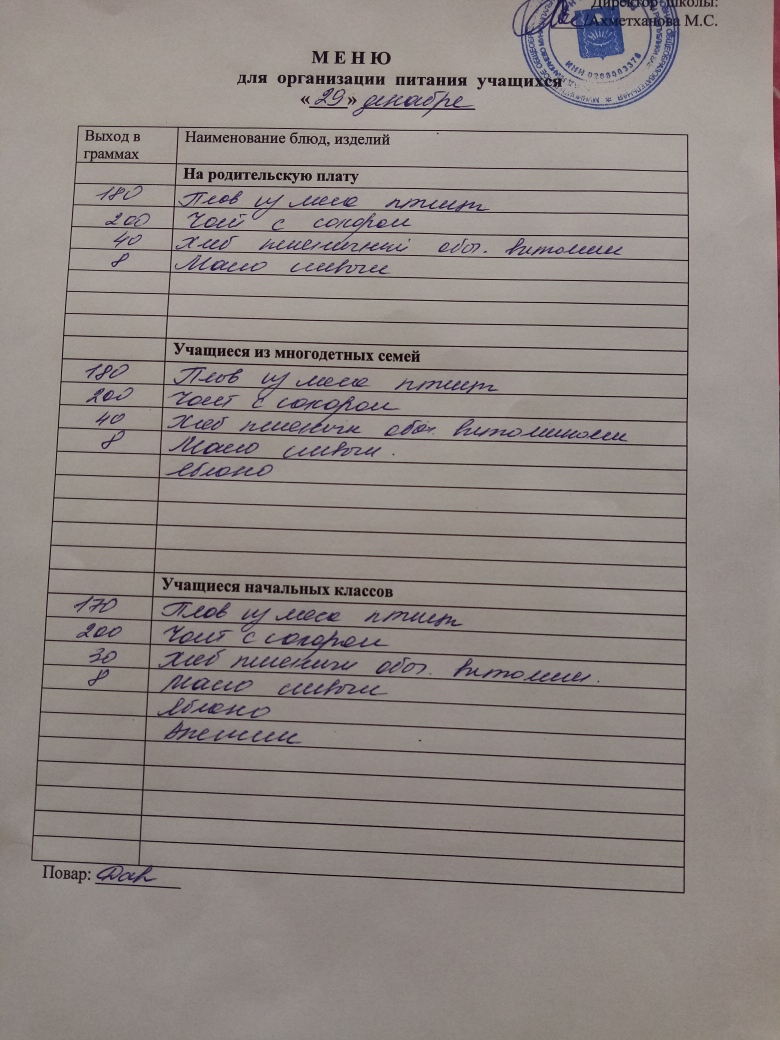 Директор школы:
Ахметханова М.С.
ИНН 0268003378
МЕНЮ
для организации питания учащихся
«29» декабре
Выход в граммах Наименование блюд, изделий
На родительскую плату
180 Плов из мяса птицы
200 Чай с сахаром
40 Хлеб пшеничный обог. витамин
8 Масло сливоч
Учащиеся из многодетных семей
180 Плов из мяса птицы
200 Чай с сахаром
40 Хлеб пшеничн обог. витаминами
8 Масло сливоч.
Яблоко
Учащиеся начальных классов
170 Плов из мяса птиц
200 Чай с сахаром
30 Хлеб пшеничн обог. витамин.
8 Масло сливоч
Яблоко
Апельсин
Повар: